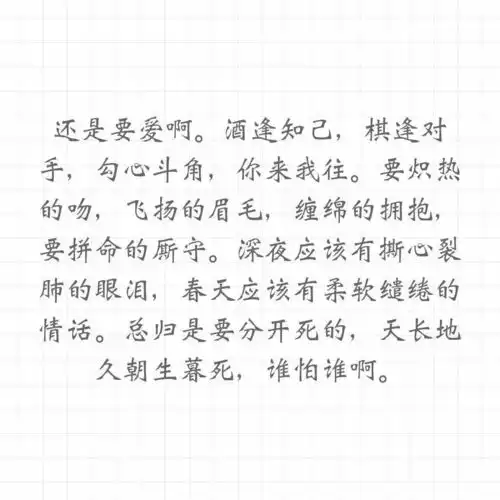 还是要爱啊。酒逢知己，棋逢对
手，勾心斗角，你来我往。要炽热
的吻，飞扬的眉毛，缠绵的拥抱，
要拼命的厮守。深夜应该有撕心裂
肺的眼泪，春天应该有柔软缱绻的
情话。总归是要分开死的，天长地
久朝生暮死，谁怕谁啊。